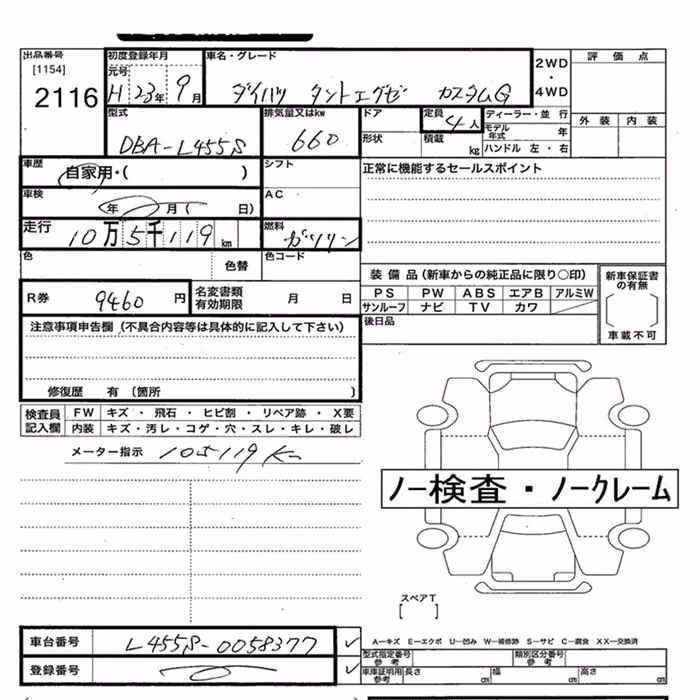 出品番号 初度登録年月 車名・グレード 2WD・4WD 評価点
[1154] 元号
2116 H 23年 9月 ダイハツ タントエグゼ カスタムG
型式 排気量又はkw ドア 定員 ディーラー・並行
DBA-L455S 660 4人 モデル年式 年 外装 内装
形状 積載 kg ハンドル 左・右
車歴 自家用・( ) シフト 正常に機能するセールスポイント
車検 年 月( 日) AC
走行 10万5千119km 燃料 ガソリン
色 色替 色コード 装備品(新車からの純正品に限り○印) 新車保証書の有無
R券 9460円 名変書類有効期限 月 日 PS PW ABS エアB アルミW
サンルーフ ナビ TV カワ
注意事項申告欄(不具合内容等は具体的に記入して下さい) 後日品 車載不可
修復歴 有(箇所 )
検査員記入欄 FW キズ・飛石・ヒビ割・リペア跡・X要
内装 キズ・汚レ・コゲ・穴・スレ・キレ・破レ
メーター指示 105119K
ノー検査・ノークレーム
スペアT
[ ]
車台番号 L455S-0058377 A-キズ E-エクボ U-凹み W-補修跡 S-サビ C-腐食 XX-交換済
型式指定番号 参考 類別区分番号 参考
登録番号 車庫証明用参考 長さ cm 幅 cm 高さ cm